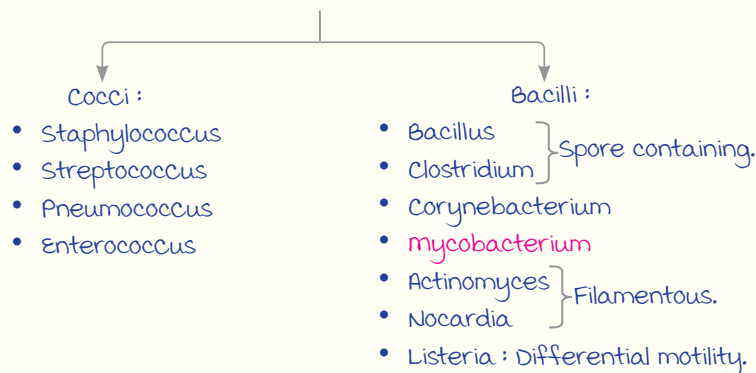 Cocci :
• Staphylococcus
• Streptococcus
• Pneumococcus
• Enterococcus
Bacilli :
• Bacillus
• Clostridium
Spore containing.
• Corynebacterium
• Mycobacterium
• Actinomyces
• Nocardia
Filamentous.
• Listeria : Differential motility.